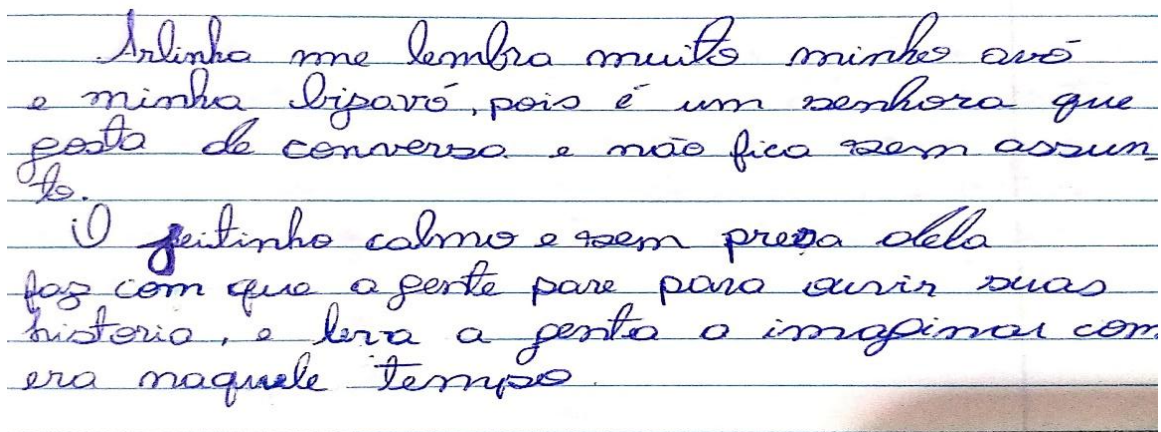 Arlinha me lembra muito minha avó
e minha bisavó, pois é um senhora que
gosta de conversa e não fica sem assun_
to.
O jeitinho calmo e sem presa dela
faz com que a gente pare para ouvir suas
historia, e leva a gente a imaginar com
era naquele tempo.